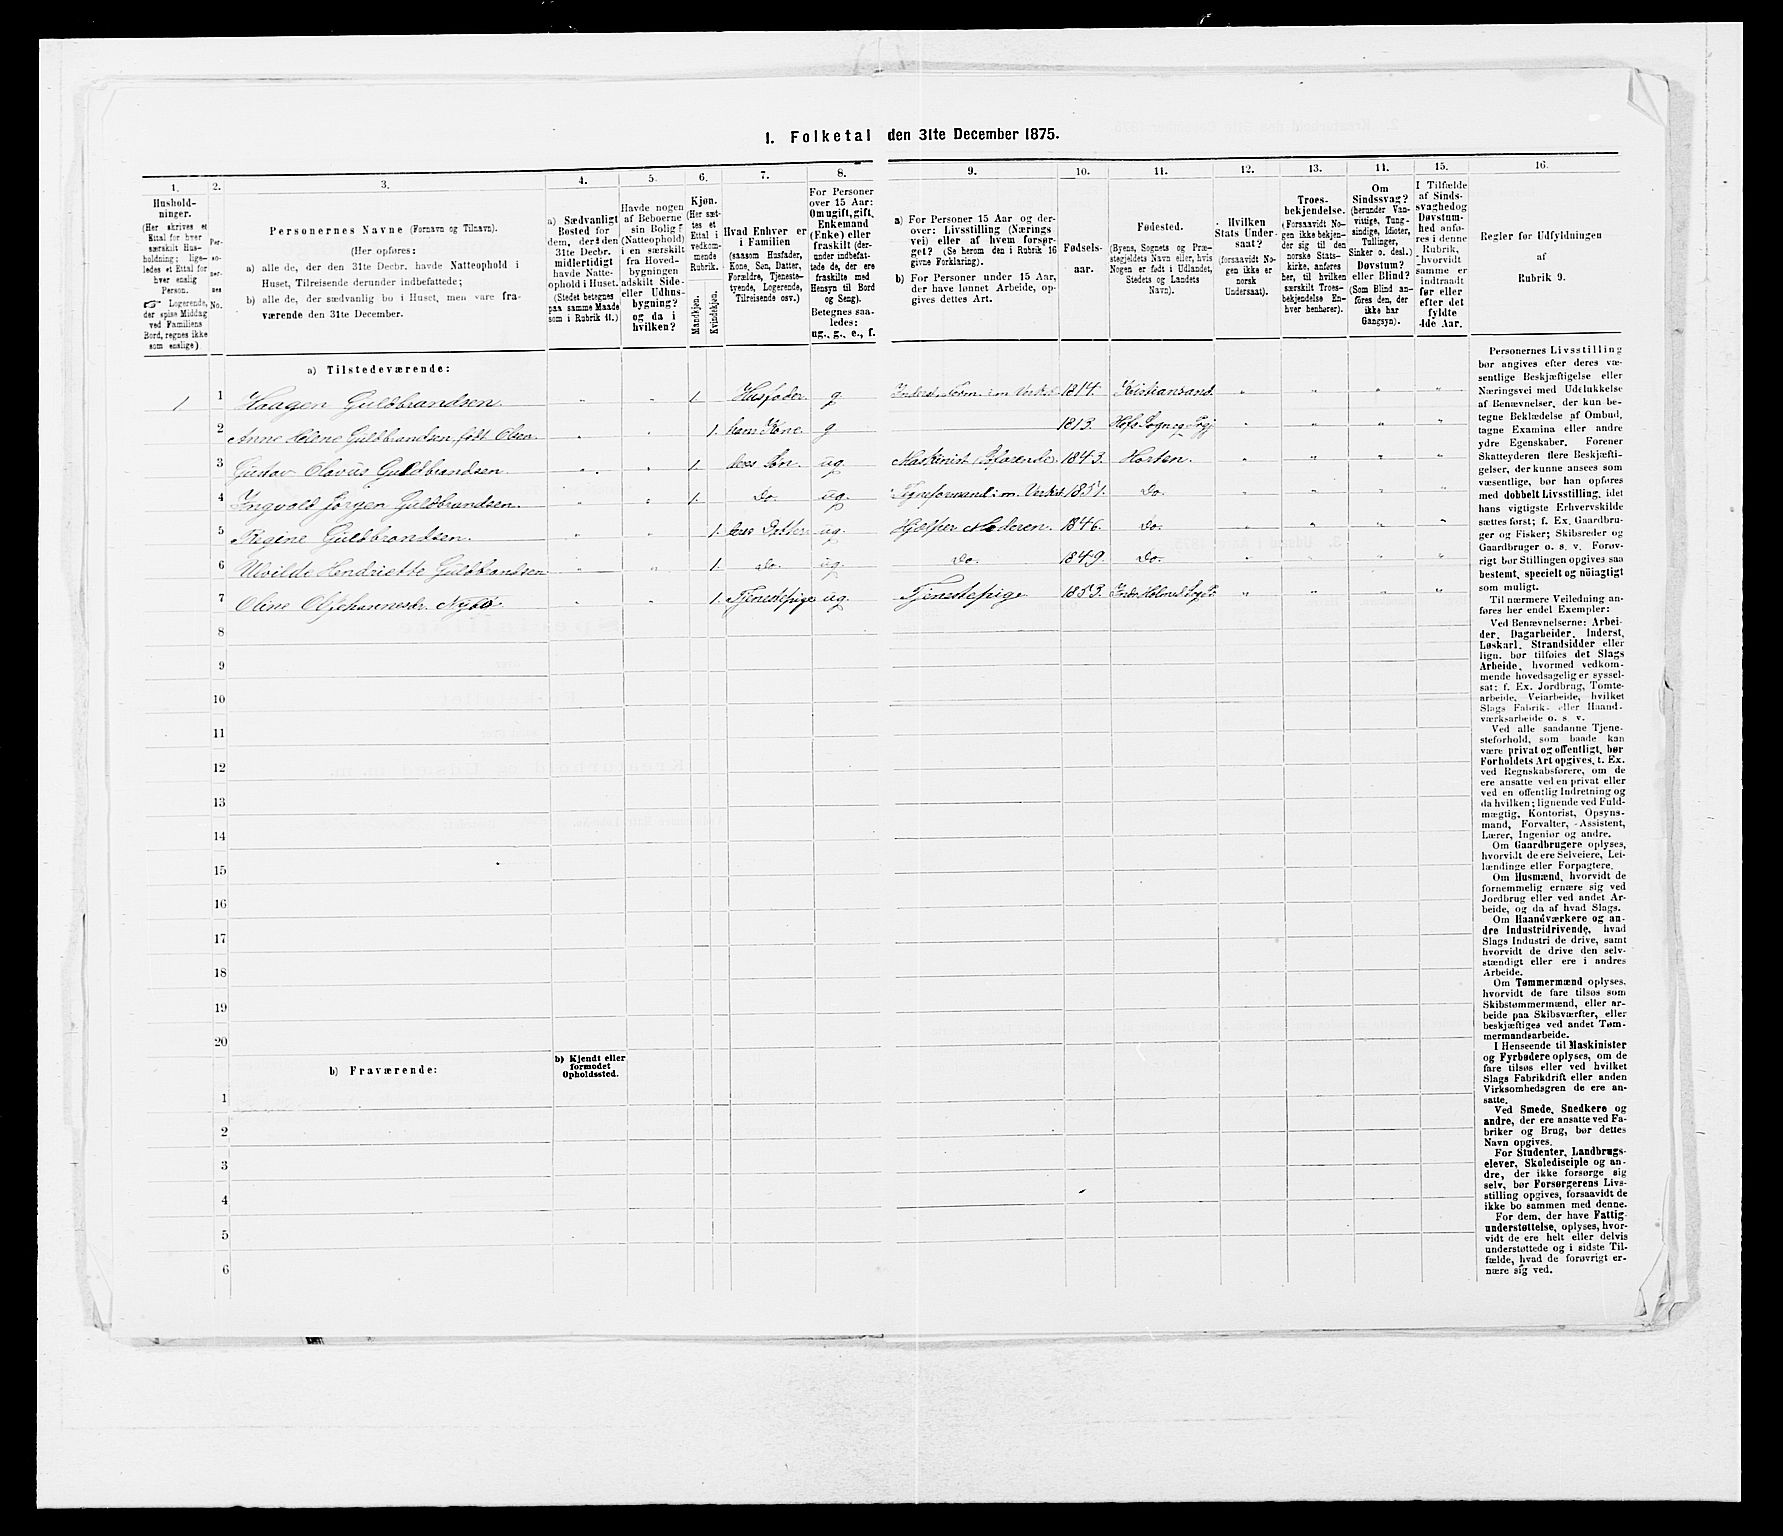 1. Folketal den 31te December 1875.
1. 2. 3. 4. 5. 6. 7. 8. 9. 10. 11. 12. 13. 14. 15. 16.
Hushold-
ninger.
(Her skrives et
Ettal for hver
særskilt Hus-
holdning; lige-
ledes et Ettal for
hver enslig
Person.
☞ Logerende,
der spise Middag
ved Familiens
Bord, regnes ikke
som enslige)
Per-
so-
ner-
nes
No.
Personernes Navne (Fornavn og Tilnavn).
(Her opføres:
a) alle de, der den 31te Decbr. havde Natteophold i
Huset, Tilreisende derunder indbefattede;
b) alle de, der sædvanlig bo i Huset, men vare fra-
værende den 31te December.
a) Sædvanligt
Bosted for
dem, der den
31te Decbr.
midlertidigt
havde Natte-
ophold i Huset.
(Stedet betegnes
paa samme Maade
som i Rubrik 11.)
Havde nogen
af Beboerne
sin Bolig
(Natteophold)
i en særskilt
fra Hoved-
bygningen
adskilt Side-
eller Udhus-
bygning?
og da i
hvilken?
Kjøn.
(Her sæt-
tes et
Ettal i
vedkom-
mende
Rubrik.
Mandkjøn.
Kvindekjøn.
Hvad Enhver er
i Familien
(saasom Husfader,
Kone, Søn, Datter,
Forældre, Tjeneste-
tyende, Logerende,
Tilreisende osv.)
For Personer
over 15 Aar:
Om ugift, gift,
Enkemand
(Enke) eller
fraskilt (der-
under indbefat-
tede de, der ere
fraskilte med
Hensyn til Bord
og Seng).
Betegnes saa-
ledes:
ug., g., e., f.
a) For Personer 15 Aar og der-
over: Livsstilling (Nærings-
vei) eller af hvem forsør-
get? (Se herom den i Rubrik 16
givne Forklaring).
b) For Personer under 15 Aar,
der have lønnet Arbeide, op-
gives dettes Art.
Fødsels-
aar.
Fødested.
(Byens, Sognets og Præ-
stegjeldets Navn eller, hvis
Nogen er født i Udlandet,
Stedets og Landets
Navn).
Hvilken
Stats Under-
saat?
(forsaavidt No-
gen ikke er
norsk
Undersaat).
Troes-
bekjendelse.
(Forsaavidt No-
gen ikke bekjen-
der sig til den
norske Stats-
kirke, anføres
her, til hvilken
særskilt Troes-
bekjendelse En-
hver henhører).
Om
Sindssvag?
(herunder Van-
vittige, Tung-
sindige, Idioter,
Tullinger,
Sinker o. desl.)
Døvstum?
eller Blind?
(Som Blind an-
føres den, der
ikke har
Gangsyn).
I Tilfælde
af Sinds-
svaghed og
Døvstum-
hed anfø-
res i denne
Rubrik,
hvorvidt
samme er
indtraadt
før eller
efter det
fyldte
4de Aar.
Regler for Udfyldningen
af
Rubrik 9.
a) Tilstedeværende:
1 1 Haagen Guldbrandsen. " " 1. Husfader g 1814. Kristiansand. " " " "
2 Anne Helene Guldbrandsen født Olsen " " 1. hans Kone g 1813. " " " "
3 Gustav Olavus Guldbrandsen " " 1. deres Søn. ug. Maskinist 1843. Horten. " " " "
4 Ingvald Jørgen Guldbrandsen. " " 1. Do. ug. 1851. Do. " " " "
5 Regine Guldbrandsen. " " 1. deres Datter ug. Hjelper Moderen. 1846. Do. " " " "
6 Hendriette Guldbrandsen " " 1. Do. ug. Do. 1849. Do. " " " "
7 Oline " " 1. Tjenestepige ug. Tjenestepige 1853. " " " "
8
9
10
11
12
13
14
15
16
17
18
19
20
b) Fraværende:
b) Kjendt eller
formodet
Opholdssted.
1
2
3
4
5
6
Personernes Livsstilling
bør angives efter deres væ-
sentlige Beskjæftigelse eller
Næringsvei med Udelukkelse
af Benævnelser, der kun be-
tegne Beklædelse af Ombud,
tagne Examina eller andre
ydre Egenskaber. Forener
Skatteyderen flere Beskjæfti-
gelser, der kunne ansees som
væsentlige, bør han opføres
med dobbelt Livsstilling, idet
hans vigtigste Erhvervskilde
sættes først; f. Ex. Gaardbru-
ger og Fisker; Skibsreder og
Gaardbruger o. s. v. Forøv-
rigt bør Stillingen opgives saa
bestemt, specielt og nöiagtigt
som muligt.
Til nærmere Veiledning an-
føres her endel Exempler:
Ved Benævnelserne: Arbei-
der, Dagarbeider, Inderst,
Løskarl, Strandsidder eller
lign. bør tilføies det Slags
Arbeide, hvormed vedkom-
mende hovedsagelig er syssel-
sat; f. Ex. Jordbrug, Tomte-
arbeide, Veiarbeide, hvilket
Slags Fabrik- eller Haand-
værksarbeide o. s. v.
Ved alle saadanne Tjene-
steforhold, som baade kan
være privat og offentligt, bør
Forholdets Art opgives, t. Ex.
ved Regnskabsførere, om de
ere ansatte ved en privat eller
ved en offentlig Indretning og
da hvilken; lignende ved Fuld-
mægtig, Kontorist, Opsyns-
mand, Forvalter, Assistent,
Lærer, Ingeniør og andre.
Om Gaardbrugere oplyses,
hvorvidt de ere Selveiere, Lei-
lændinge eller Forpagtere.
Om Husmænd, hvorvidt de
fornemmelig ernære sig ved
Jordbrug eller ved andet Ar-
beide, og da af hvad Slags.
Om Haandværkere og an-
dre Industridrivende, hvad
Slags Industri de drive, samt
hvorvidt de drive den selv-
stændigt eller ere i andres
Arbeide.
Om Tømmermænd oplyses,
hvorvidt de fare tilsøs som
Skibstømmermænd, eller ar-
beide paa Skibsværfter, eller
beskjæftiges ved andet Tøm-
mermandsarbeide.
I Henseende til Maskinister
og Fyrbødere oplyses, om de
fare tilsøs eller ved hvilket
Slags Fabrikdrift eller anden
Virksomhedsgren de ere an-
satte.
Ved Smede, Snedkere og
andre, der ere ansatte ved Fa-
briker og Brug, bør dettes
Navn opgives.
For Studenter, Landbrugs-
elever, Skoledisciple og an-
dre, der ikke forsørge sig
selv, bør Forsørgerens Livs-
stilling opgives, forsaavidt de
ikke bo sammen med denne.
For dem, der have Fattig-
understøttelse, oplyses, hvor-
vidt de ere helt eller delvis
understøttede og i sidste Til-
fælde, hvad de forøvrigt er-
nære sig ved.